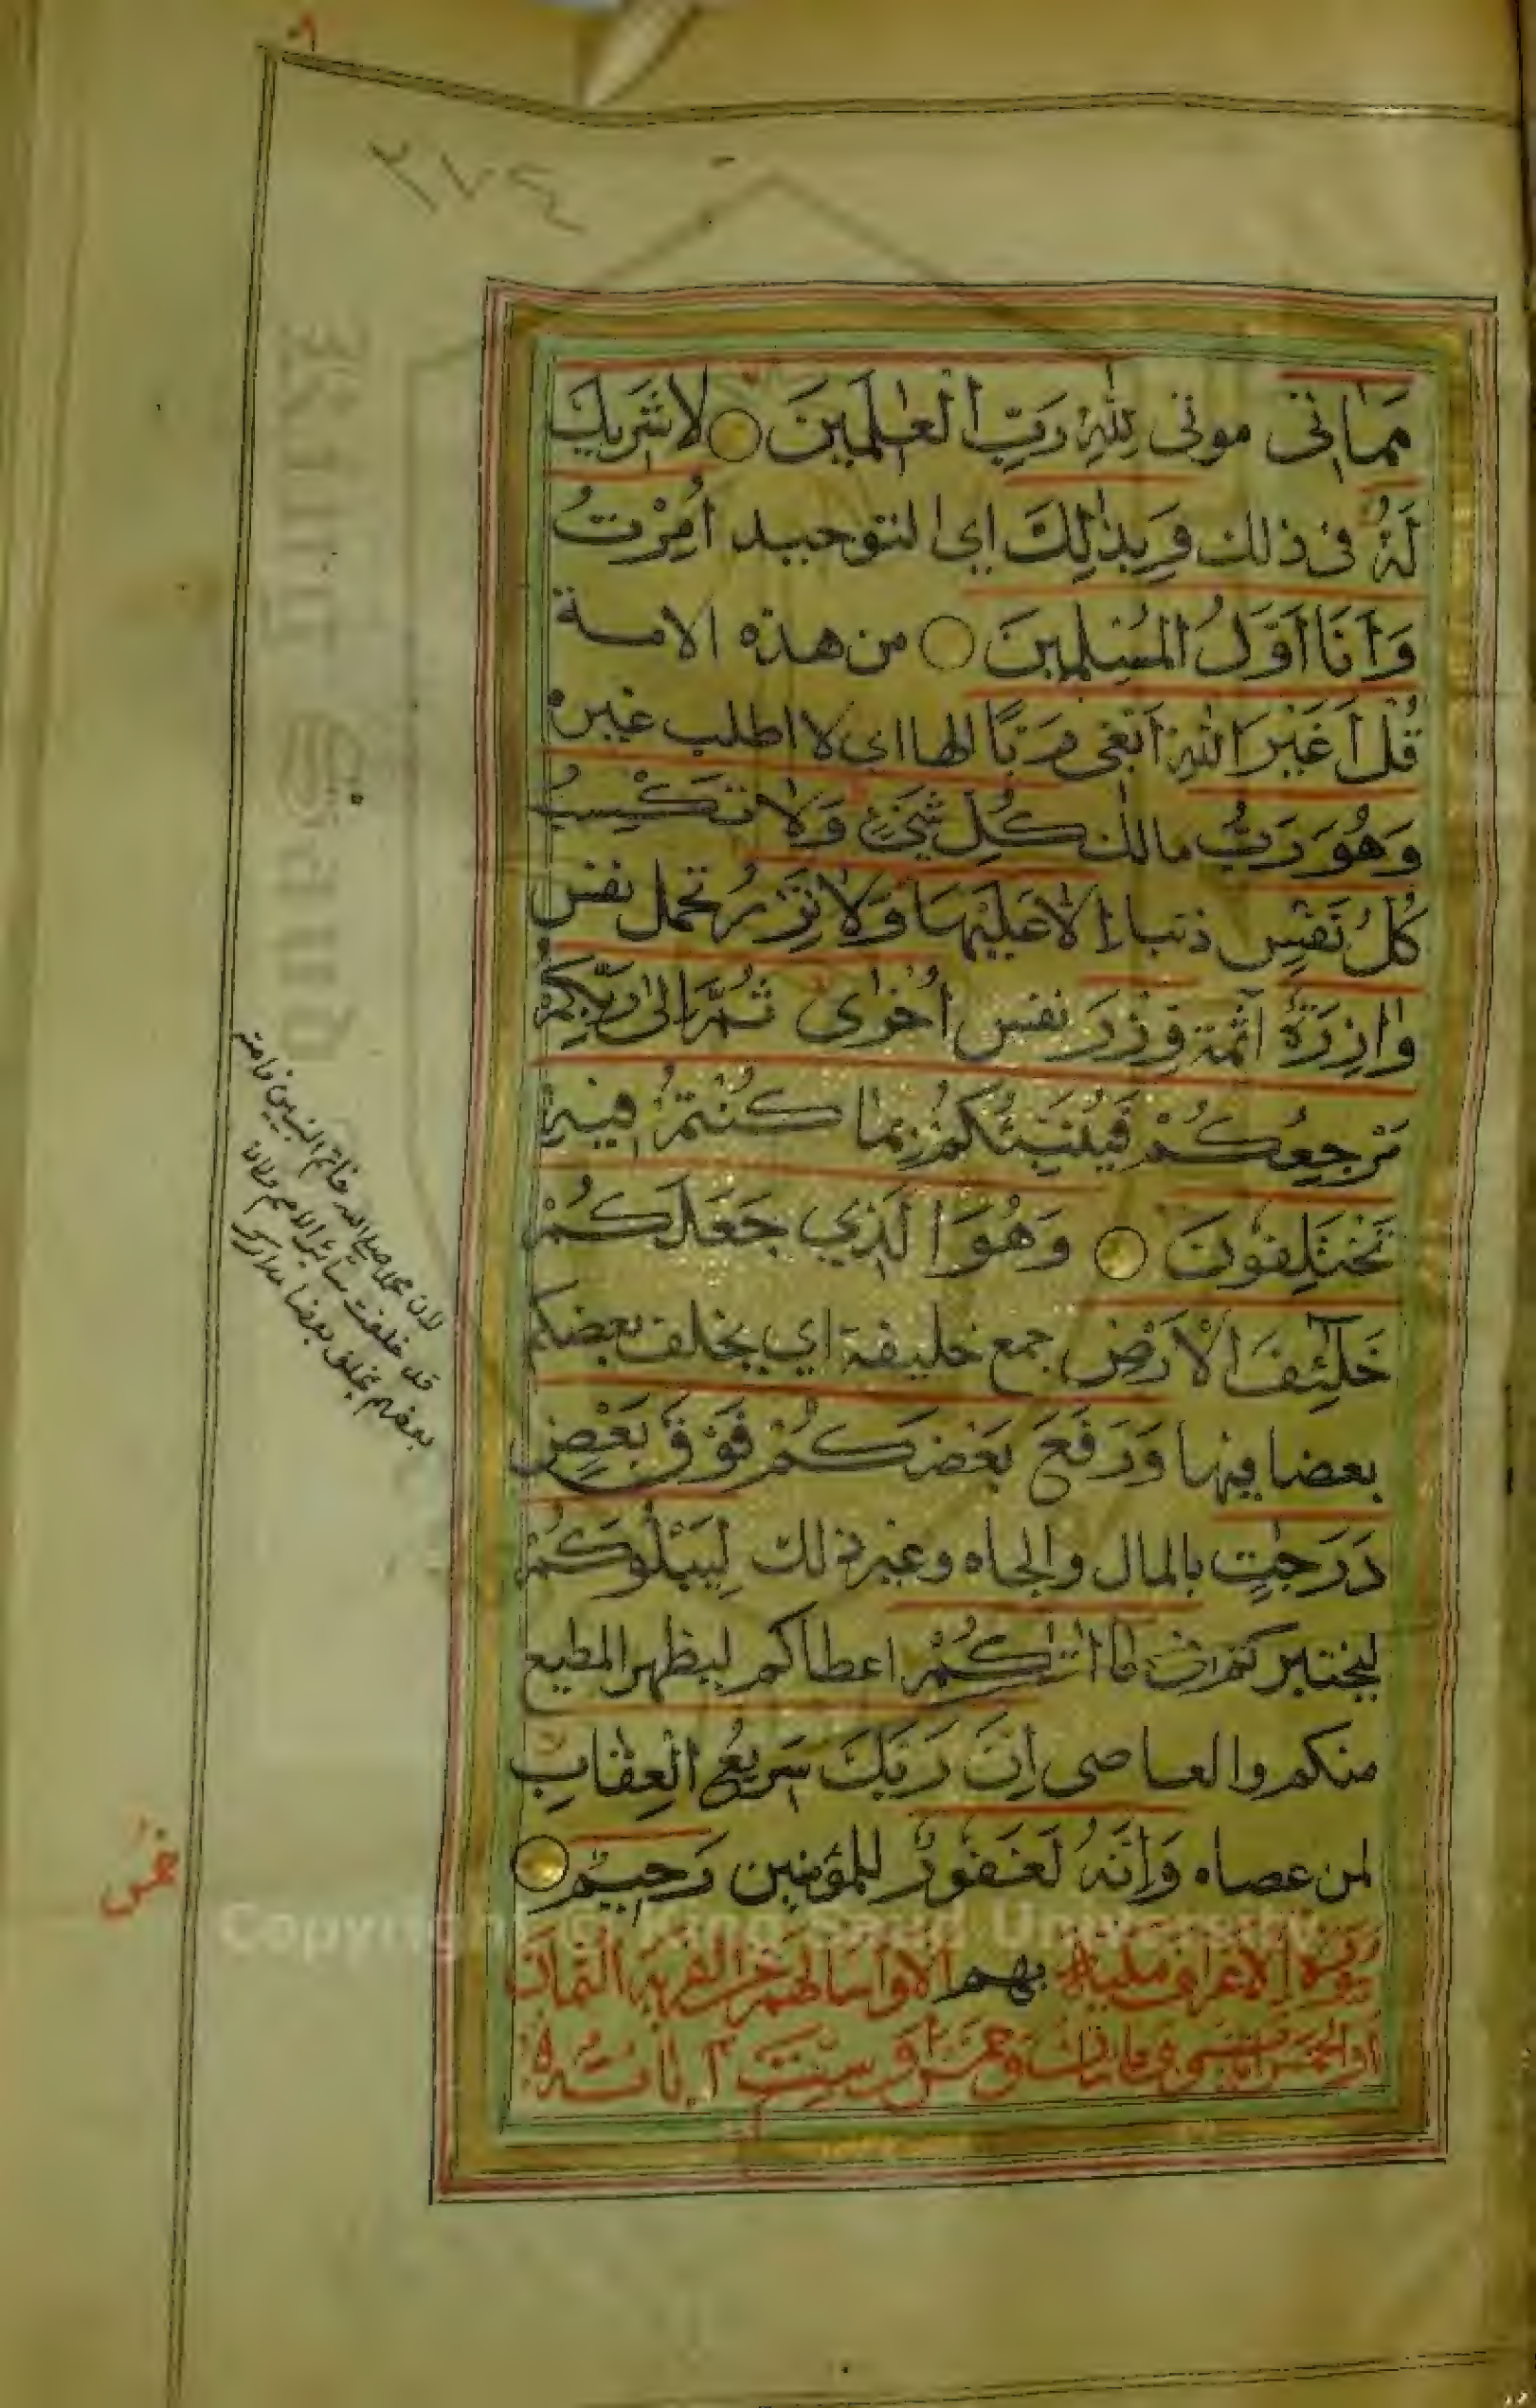 مَمَاتِى موتى لِلّٰهِ رَبِّ الْعٰلَمِينَ لَا شَرِيكَ
لَهُ فى ذلك وَبِذٰلِكَ اى التوحيد اُمِرْتُ
وَاَنَا اَوَّلُ الْمُسْلِمِينَ من هذه الامة
قُلْ اَغَيْرَ اللّٰهِ اَبْغِى رَبًّا الها اى لا اطلب غيره
وَهُوَ رَبُّ مالك كُلِّ شَىْءٍ وَلَا تَكْسِبُ
كُلُّ نَفْسٍ ذنبا اِلَّا عَلَيْهَا وَلَا تَزِرُ تحمل نفس
وَازِرَةٌ آثمة وِزْرَ نفس اُخْرٰى ثُمَّ اِلٰى رَبِّكُمْ
مَرْجِعُكُمْ فَيُنَبِّئُكُمْ بِمَا كُنْتُمْ فِيهِ
تَخْتَلِفُونَ وَهُوَ الَّذِي جَعَلَكُمْ
خَلٰٓئِفَ الْاَرْضِ جمع خليفة اي يخلف بعضكم
بعضا فيها وَرَفَعَ بَعْضَكُمْ فَوْقَ بَعْضٍ
دَرَجٰتٍ بالمال والجاه وغير ذلك لِيَبْلُوَكُمْ
ليختبركم فى مَا اٰتٰىكُمْ اعطاكم ليظهر المطيع
منكم والعاصى اِنَّ رَبَّكَ سَرِيعُ الْعِقَابِ
لمن عصاه وَاِنَّهُ لَغَفُورٌ للمؤمنين رَحِيمٌ
سورة الاعراف مكية الا واسالهم عن القرية الثمان
او الخمس ايات وهى مايتان وخمس او ست آياته
لان محمدا صلى الله خاتم النبيين فامته
قد خلفت سائر الامم
بعضهم يخلف بعضا مدارك
King Saud
Copyright © King Saud University